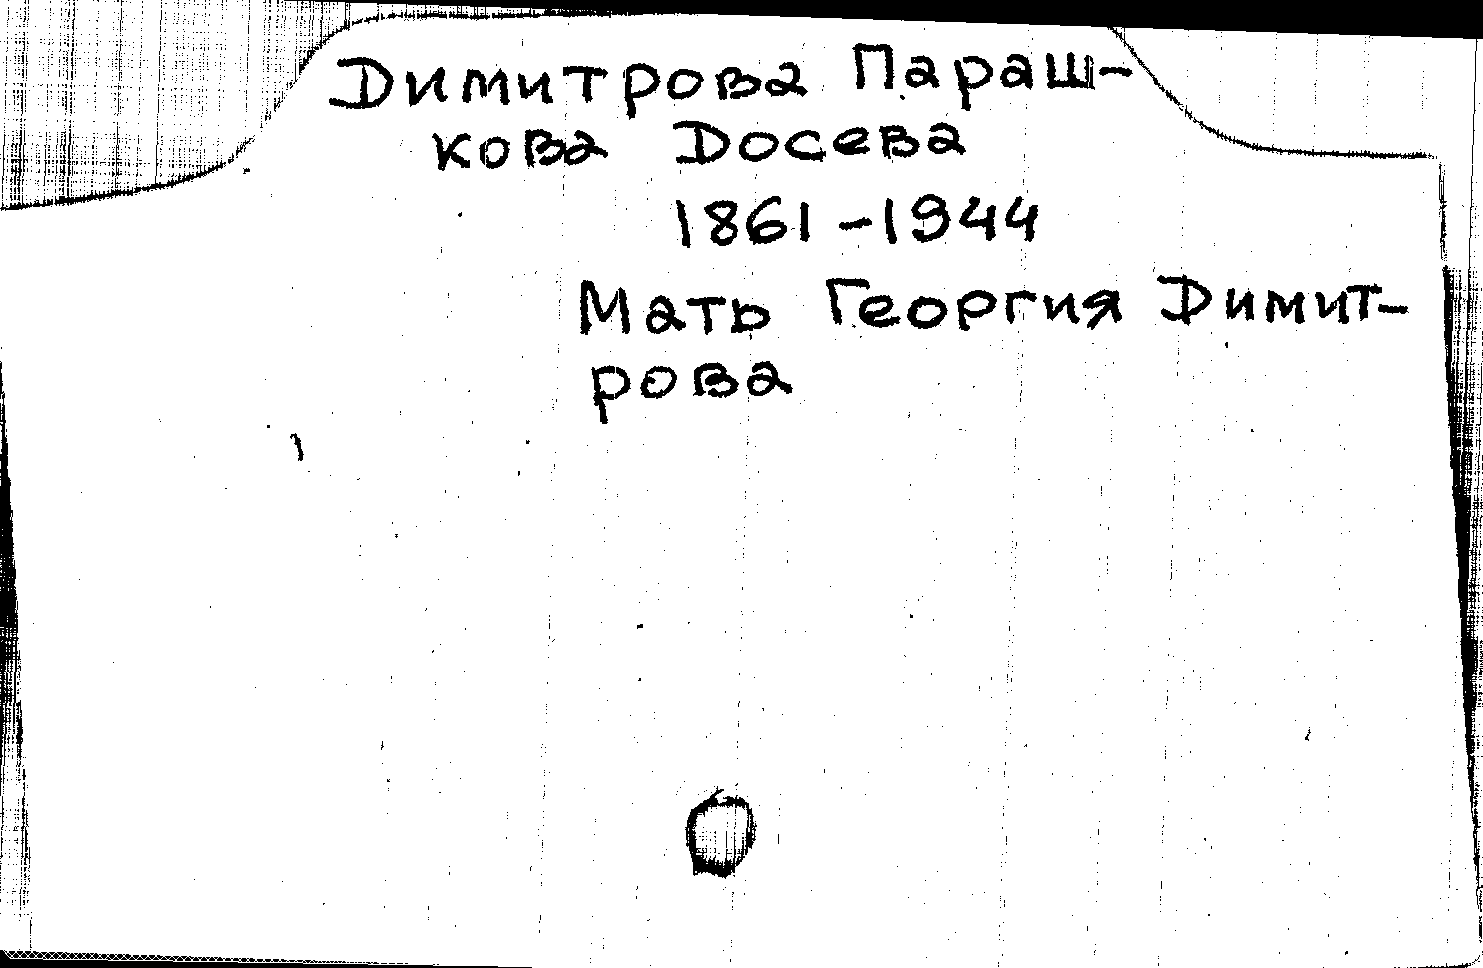 Димитрова Параш-
кова Досева
1861-1944
Мать Георгия Димит-
рова